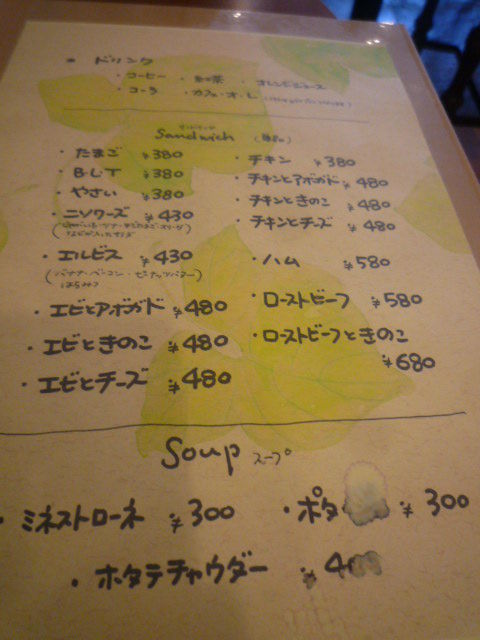 • ドリンク
・コーヒー ・紅茶 ・オレンジジュース
・コーラ ・カフェ・オ・レ
サンドイッチ
Sandwich
・たまご ¥380
・チキン ¥380
・BLT ¥380
・チキンとアボガド ¥480
・やさい ¥380
・チキンときのこ ¥480
・ニソワーズ ¥430
・チキンとチーズ ¥480
・エルビス ¥430
(バナナ・ベーコン・ピーナッツバター
はちみつ)
・ハム ¥580
・エビとアボガド ¥480
・ローストビーフ ¥580
・エビときのこ ¥480
・ローストビーフときのこ
¥680
・エビとチーズ ¥480
Soup スープ
・ミネストローネ ¥300
・ポタ ¥300
・ホタテチャウダー ¥4